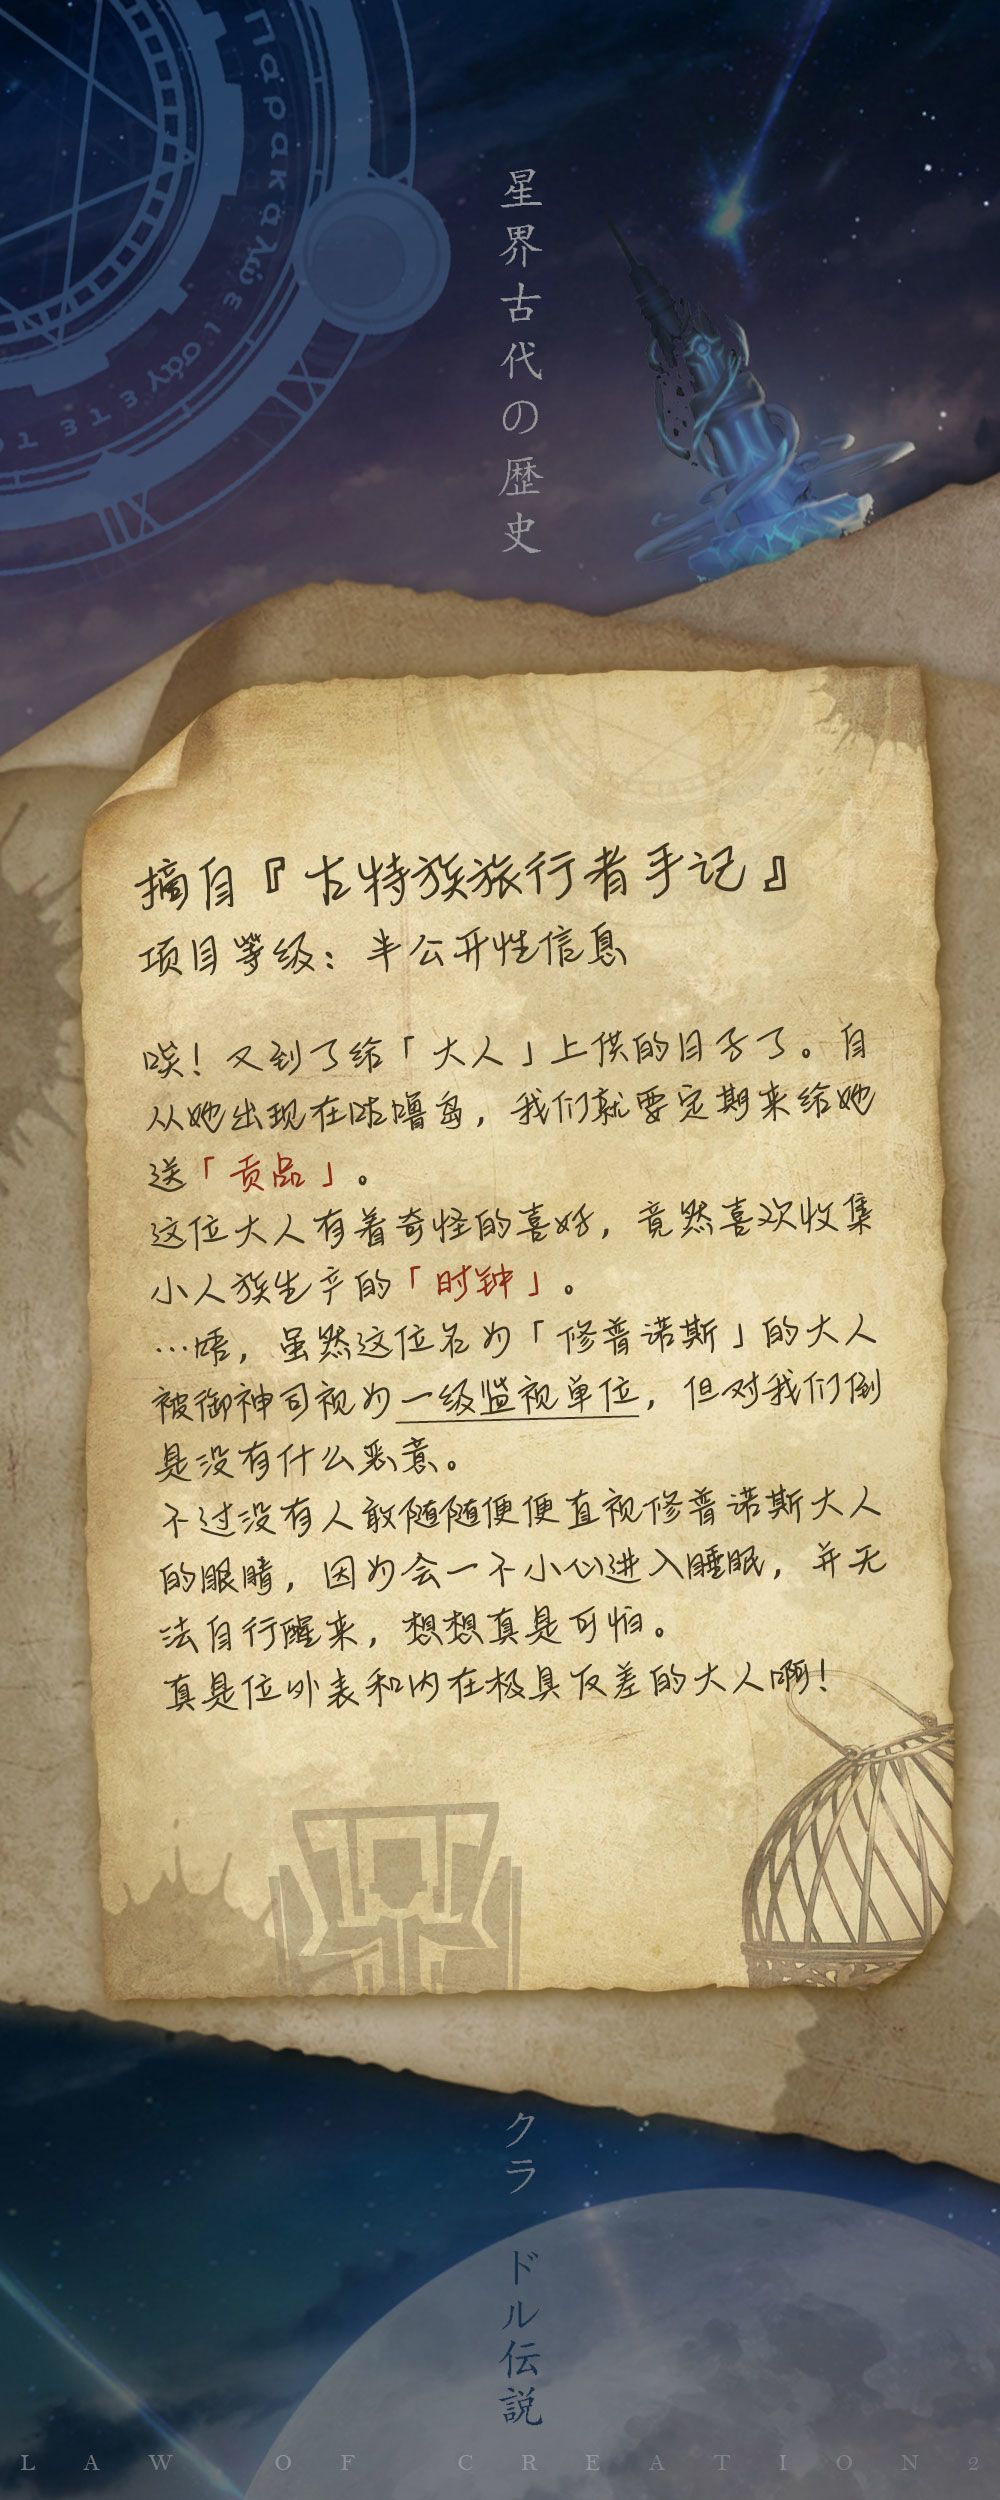 星界古代の歴史
摘自『古特族旅行者手记』
项目等级：半公开性信息
唉！又到了给「大人」上供的日子了。自
从她出现在咕噜岛，我们就要定期来给她
送「贡品」。
这位大人有着奇怪的喜好，竟然喜欢收集
小人族生产的「时钟」。
…唔，虽然这位名为「修普诺斯」的大人
被御神司视为一级监视单位，但对我们倒
是没有什么恶意。
不过没有人敢随随便便直视修普诺斯大人
的眼睛，因为会一不小心进入睡眠，并无
法自行醒来，想想真是可怕。
真是位外表和内在极具反差的大人啊！
クラ ドル伝説
LAW OF CREATION 2